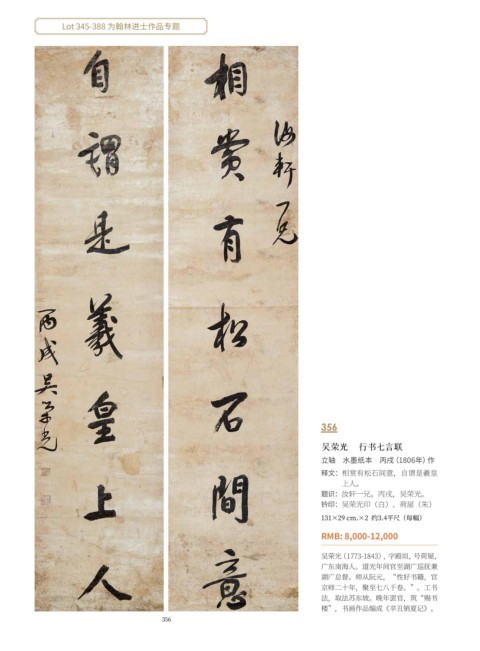 Lot 345-388 为翰林进士作品专题
相赏有松石間意
汝軒一兄
自謂是羲皇上人
丙戌吴荣光
356
吴荣光 行书七言联
立轴 水墨纸本 丙戌(1806年)作
释文:相赏有松石间意,自谓是羲皇
上人。
题识:汝轩一兄。丙戌,吴荣光。
钤印:吴荣光印(白)、荷屋(朱)
131×29 cm.×2 约3.4平尺(每幅)
RMB: 8,000-12,000
吴荣光(1773-1843),字殿垣,号荷屋,
广东南海人。道光年间官至湖广巡抚兼
湖广总督。师从阮元,“性好书籍,官
京师二十年,聚至七八千卷。”。工书
法,取法苏东坡。晚年罢官,筑“赐书
楼”,书画作品编成《辛丑销夏记》。
356